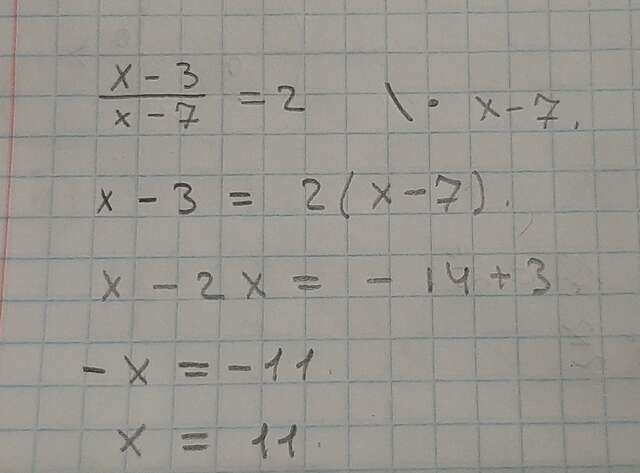 x - 3 / x - 7 = 2 \ · x - 7.
x - 3 = 2(x - 7).
x - 2x = - 14 + 3
- x = - 11.
x = 11.